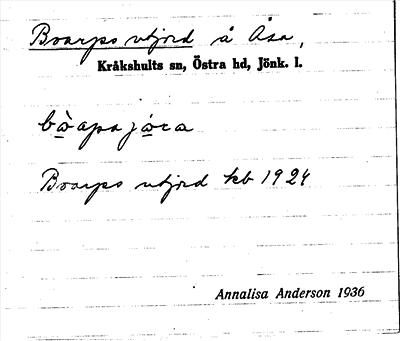 Boarps utjord å Åsa,
Kråkshults sn, Östra hd, Jönk. l.
bòapsjora
Boarps utjord kb 1924
Annalisa Anderson 1936